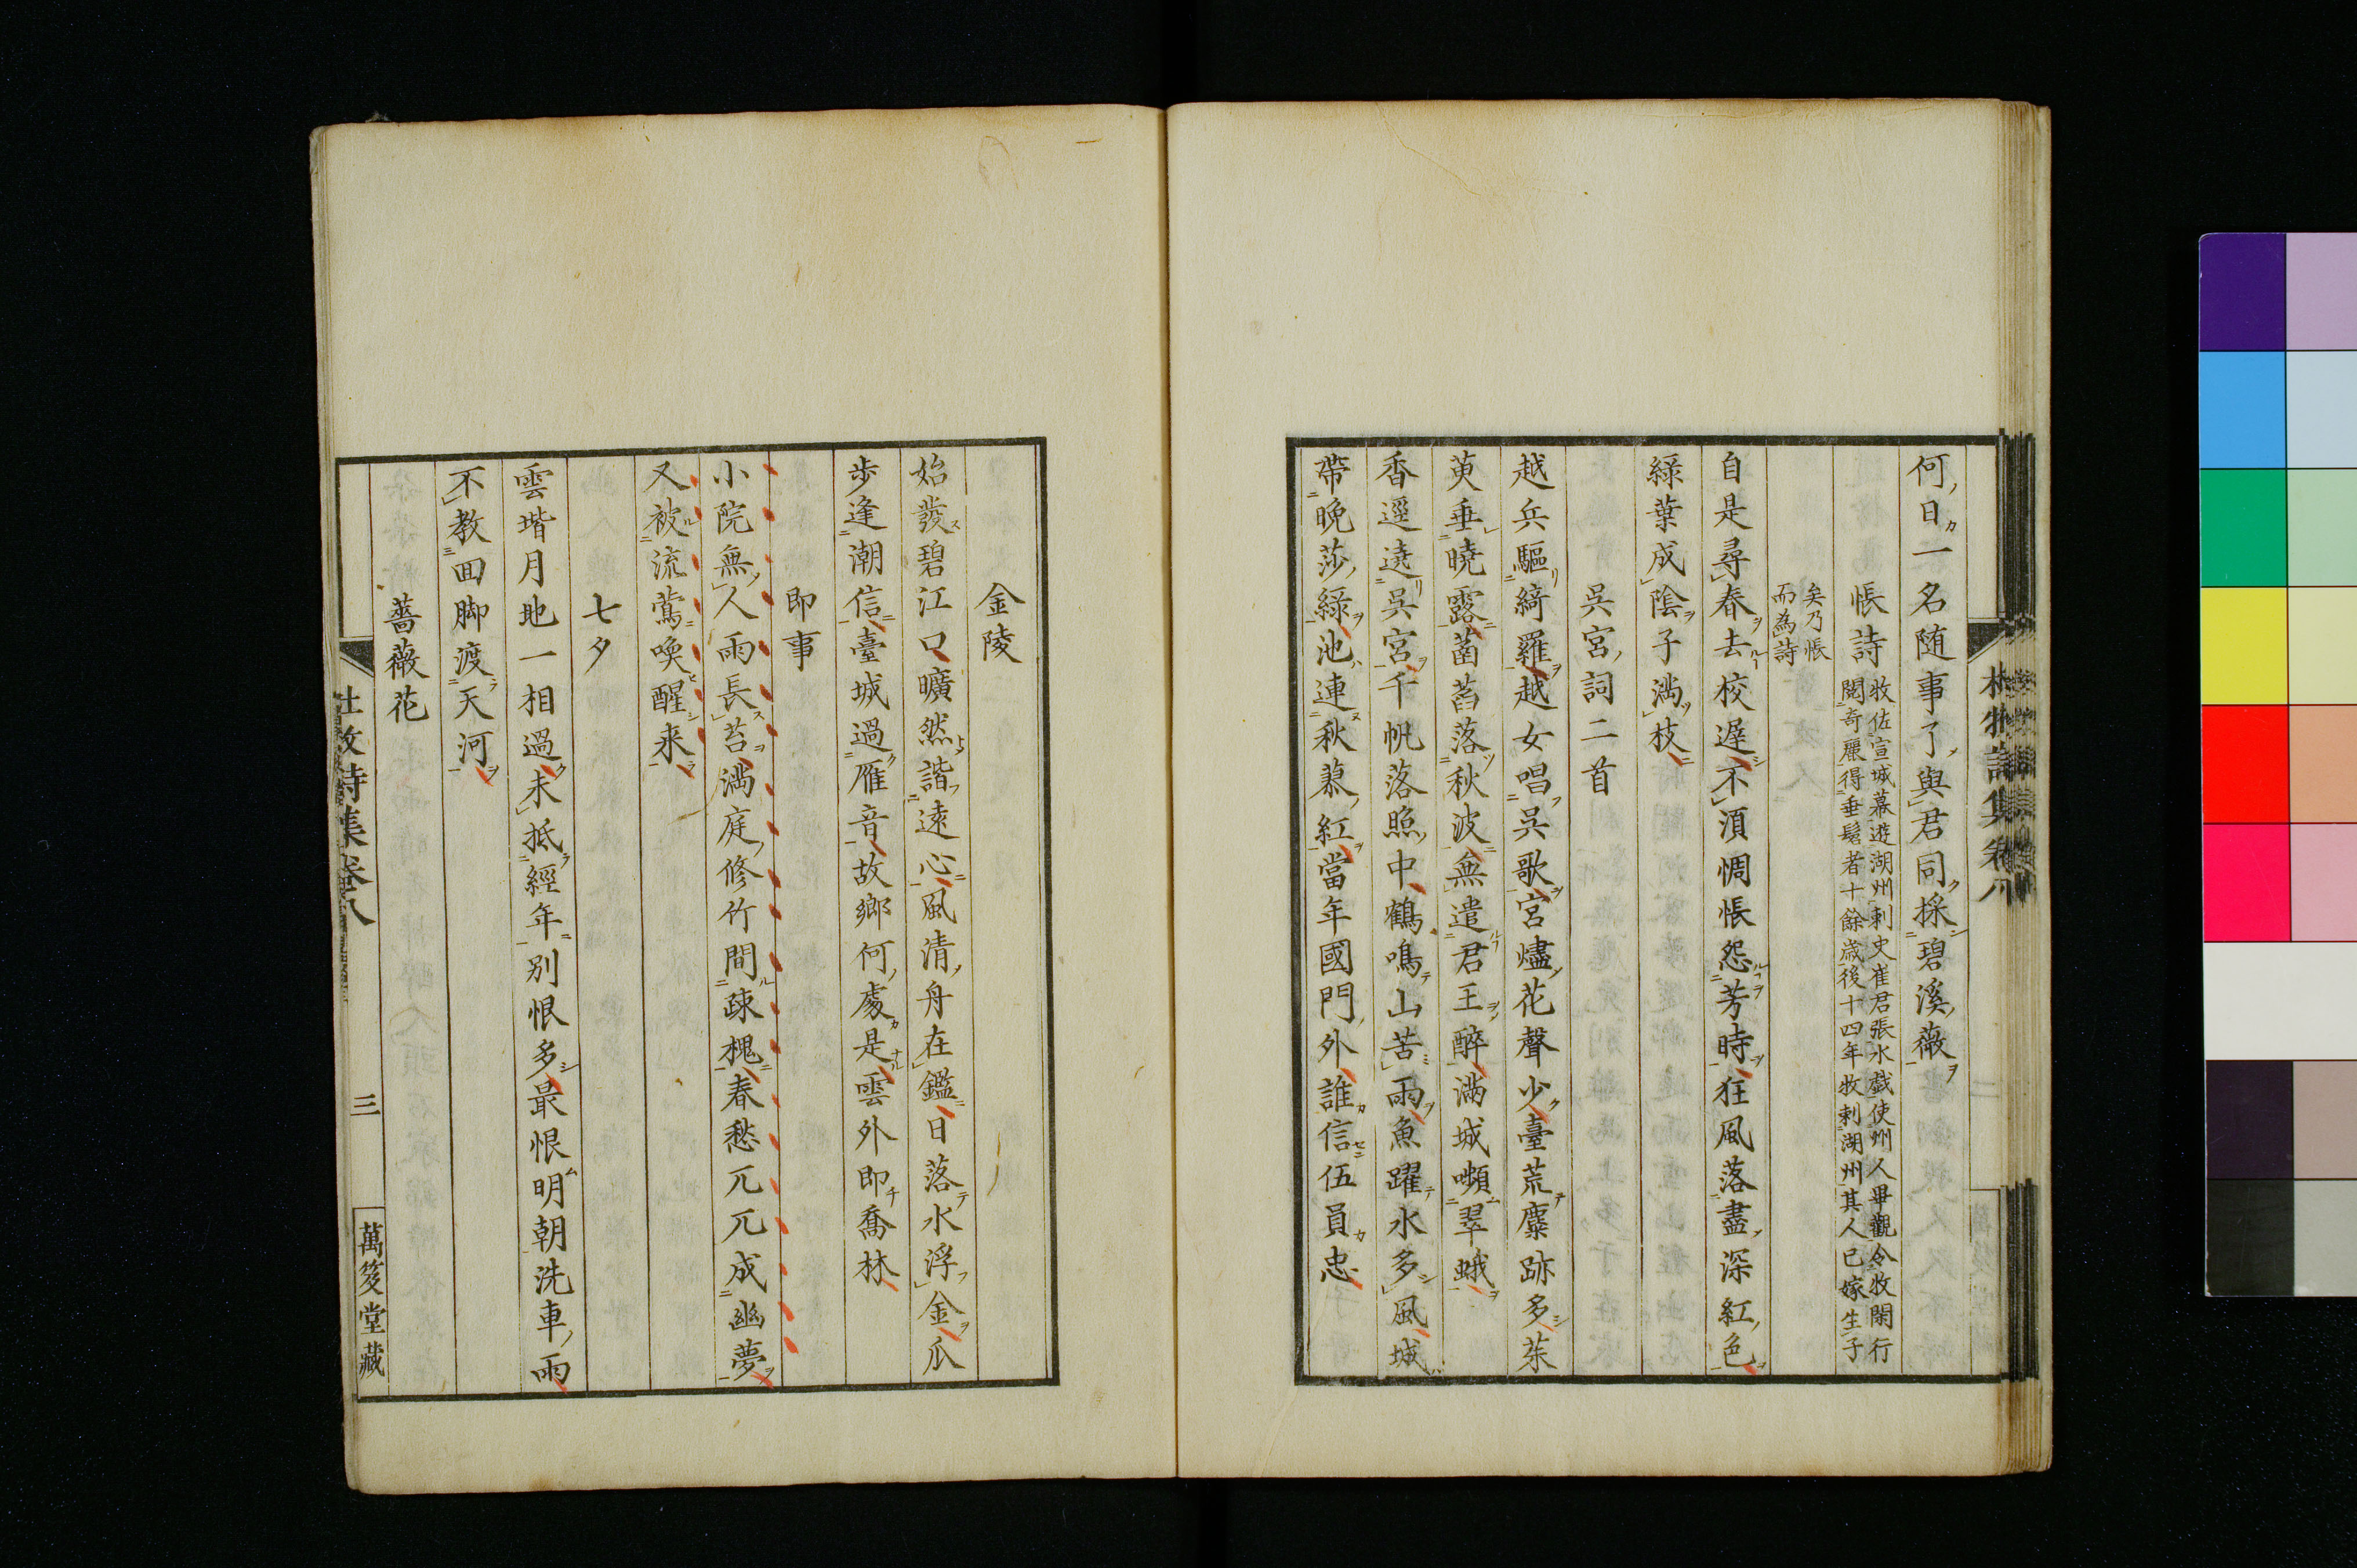 何日一名随事了與君同採碧溪薇
悵詩
牧佐宣城幕遊湖州刺史崔君張水戯使州人畢觀令牧閑行
閱奇麗得垂髫者十餘歲後十四年牧刺湖州其人已嫁生子
矣乃悵
而為詩
自是尋春去校遅不湏惆悵怨芳時狂風落盡深紅色
緑葉成隂子滿枝
吳宮詞二首
越兵驅綺羅越女唱吳歌宮燼花聲少臺荒麋跡多茱
萸垂曉露菡萏落秋波無遣君王醉滿城嚬翠蛾
香逕遶吳宮千帆落照中鶴鳴山苦雨魚躍水多風城
帶晚莎緑池連秋蓼紅當年國門外誰信伍員忠
金陵
始發碧江口曠然諧遠心風清舟在鑑日落水浮金瓜
步逢潮信臺城過雁音故鄉何處是雲外即喬林
即事
小院無人雨長苔滿庭修竹間疎槐春愁兀兀成幽夢
又被流鶯喚醒来
七夕
雲堦月地一相過未抵經年別恨多最恨明朝洗車雨
不教回脚渡天河
薔薇花
杜牧詩集卷八
三
萬笈堂藏